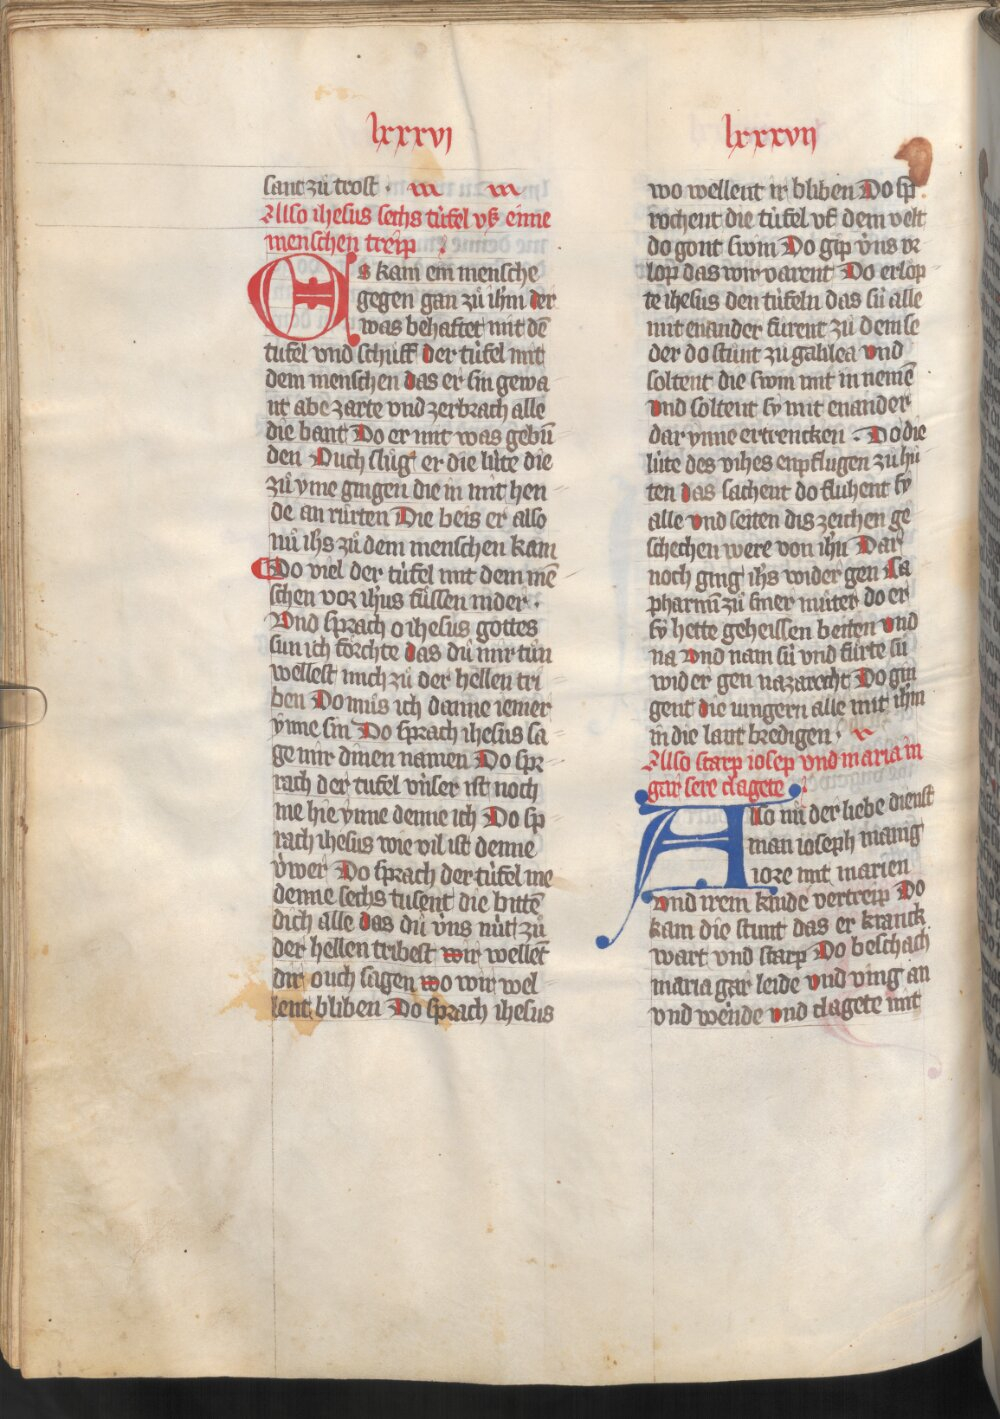 lxxxvi
sant zuͦ trost ·
Also ihesus sechs tùfel vß eime
menschen treip
Es kam ein mensche
gegen gan zuͦ ihm der
was behaftet mit dē
tufel vnd schuͦff der tùfel mit
dem menschen das er sin gewa
nt abe zarte vnd zerbrach alle
die bant Do er mit was gebū
den Ouch sluͦg er die lùte die
zuͦ yme gingen die in mit hen
de an ruͦrten Die beis er also
nuͦ ihs zuͦ dem menschen kam
Do viel der tùfel mit dem mē
schen vor ihus fuͤssen nider ·
Vnd sprach o ihesus gottes
sun ich foͤrchte das duͦ mir tuͦn
wellest mich zuͦ der hellen tri
ben Do muͦs ich danne iemer
yme sin Do sprach ihesus sa
ge mir dinen namen Do spr
rach der tufel vnser ist noch
me hie ynne denne ich Do sp
rach ihesus wie vil ist denne
vwer Do sprach der tùfel me
denne sechs tusent die bittē
dich alle das duͦ vns nùt zuͦ
der hellen tribest wir wellēt
dir ouch sagen wo wir wel
lent bliben Do sprach ihesus
lxxxvii
wo wellent ir bliben Do sp
rochent die tùfel vf dem velt
do gont swin Do gip vns vr
lop das wir varent Do erlop
te ihesus den tùfeln das sù alle
mit enander fuͦrent zuͦ dem se
der do stuͦnt zu galilea vnd
soltent die swin mit in nemē
vnd soltent sy mit enander
dar ynne ertrencken · Do die
lùte des vihes enpflugen zu huͦ
ten das sachent do fluhent sy
alle vnd seiten dis zeichen ge
schechen were von ihm Dar
noch ging ihs wider gen Ca
pharnū zuͦ siner muͦter do er
sy hette geheissen beiten vnd
na vnd nam sù vnd fuͦrte sù
wider gen nazarecht Do gin
gent die iungern alle mit ihm
in die lant bredigen ·
Also starp iosep vnd maria in
gar sere clagete
Also nuͦ der liebe dienst
man ioseph manig
iore mit marien
vnd irem kinde vertreip Do
kam die stunt das er kranck
wart vnd starp Do beschach
maria gar leide vnd ving an
vnd weinde vnd clagete mit